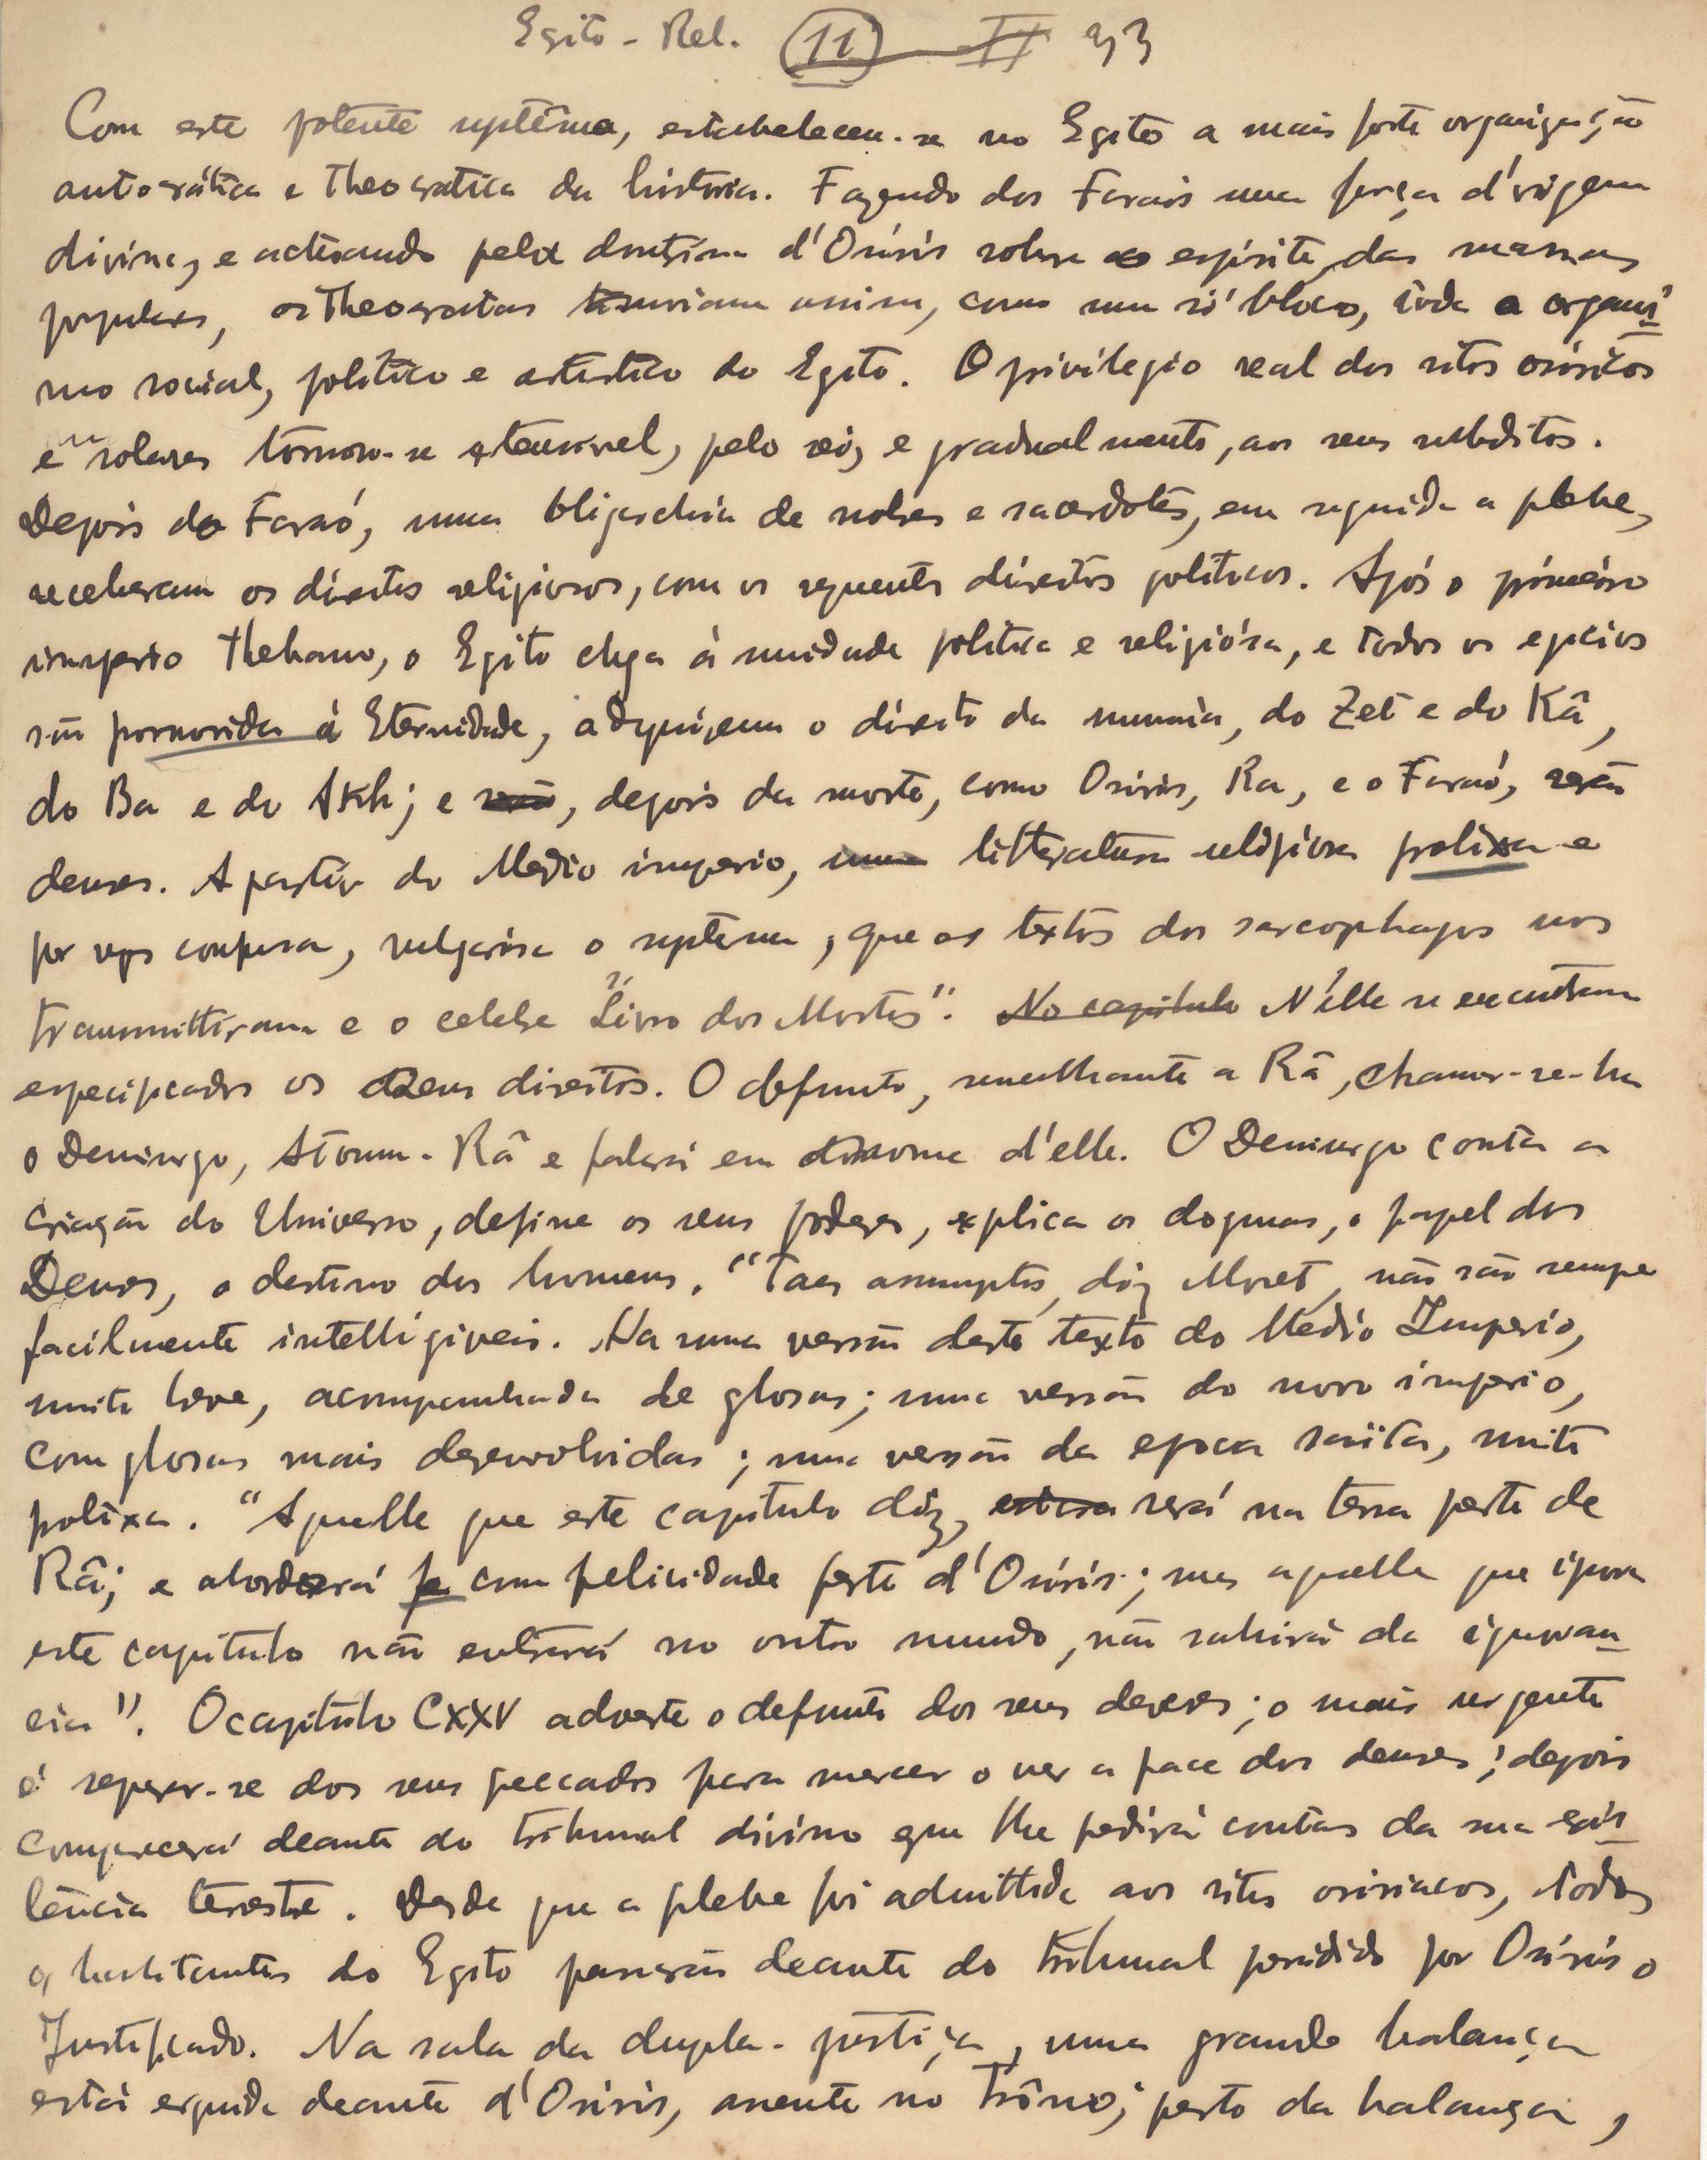 Egito - Rel. (11) II 33
Com este potente systêma, estabeleceu-se no Egito a mais forte organização
autocrática e theocratica da história. Fazendo dos Faraós uma força d'origem
divina, e actuando pela doutrina d'Osiris sobre o espirito das massas
populares, os theocratas uniam assim, como um só bloco, todo o organis-
mo social, politico e artistico do Egito. O privilegio real dos ritos osiricos
e solares tornou-se extensivel, pelo rei, e gradualmente, aos seus subditos.
Depois do Faraó, uma oligarchia de nobres e sacerdotes, em seguida a plebe,
receberam os direitos religiosos, com os seguentes direitos politicos. Após o primeiro
imperio thebano, o Egito chega á unidade politica e religiósa, e todos os epcios
são promovidos á Eternidade, adquirem o direito da mumia, do Zet e do Kâ,
do Ba e do Akh; e serão, depois da morte, como Osiris, Ra, e o Faraó, serão
deuses. A partir do Medio imperio, uma litteratura religiosa prolixa e
por vezes confusa, vulgarisa o systema, que os textos dos sarcophagos nos
transmittiram e o celebre "Livro dos Mortos". No capitulo N'elle se encontram
especificados os seus direitos. O defunto, semelhante a Râ, chamar-se-ha
o Demiurgo, Atoum-Râ e falará em nome d'elle. O Demiurgo conta a
criação do Universo, define os seus poderes, explica os dogmas, o papel dos
Deuses, o destino dos homens. "Taes assumptos, diz Moret, não são sempre
facilmente intelligiveis. Ha uma versão deste texto do Médio Imperio,
muito breve, acompanhada de glosas; uma versão do novo imperio,
com glosas mais desenvolvidas; uma versão da epoca saïta, muito
prolixa. "Aquelle que este capitulo diz, será na terra perto de
Râ; e abordará com felicidade perto d'Osiris; mas aquelle que ignora
este capitulo não entrará no outro mundo, não sahirá da ignoran-
cia". O capitulo CXXV adverte o defunto dos seus deveres; o mais urgente
é separar-se dos seus peccados para merecer o ver a face dos deuses; depois
comparecerá deante do tribunal divino que lhe pedirá contas da sua exis-
tencia terestre. Desde que a plebe foi admittida aos ritos osiriacos, todos
os habitantes do Egito passarão deante do tribunal presidido por Osiris o
Justificado. Na sala da dupla-justiça, uma grande balança
está erguida deante d'Osiris, assente no trôno; perto da balança,